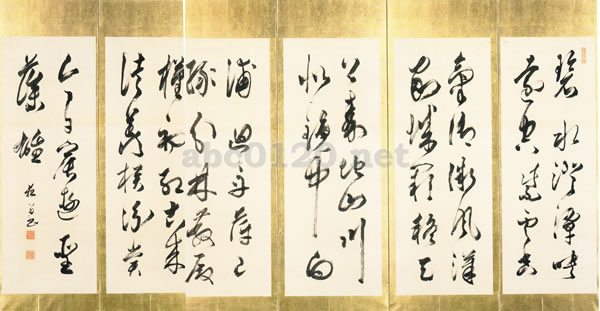 碧水澄潭映
遠空紫雲香
駕御微風漢
家城闕疑天
上秦地山川
似鏡中向
浦迴舟萍已
綠分林蔽殿
槿初紅古來
徒羨橫汾賞
今日宸遊聖
藻雄
abc0120.net